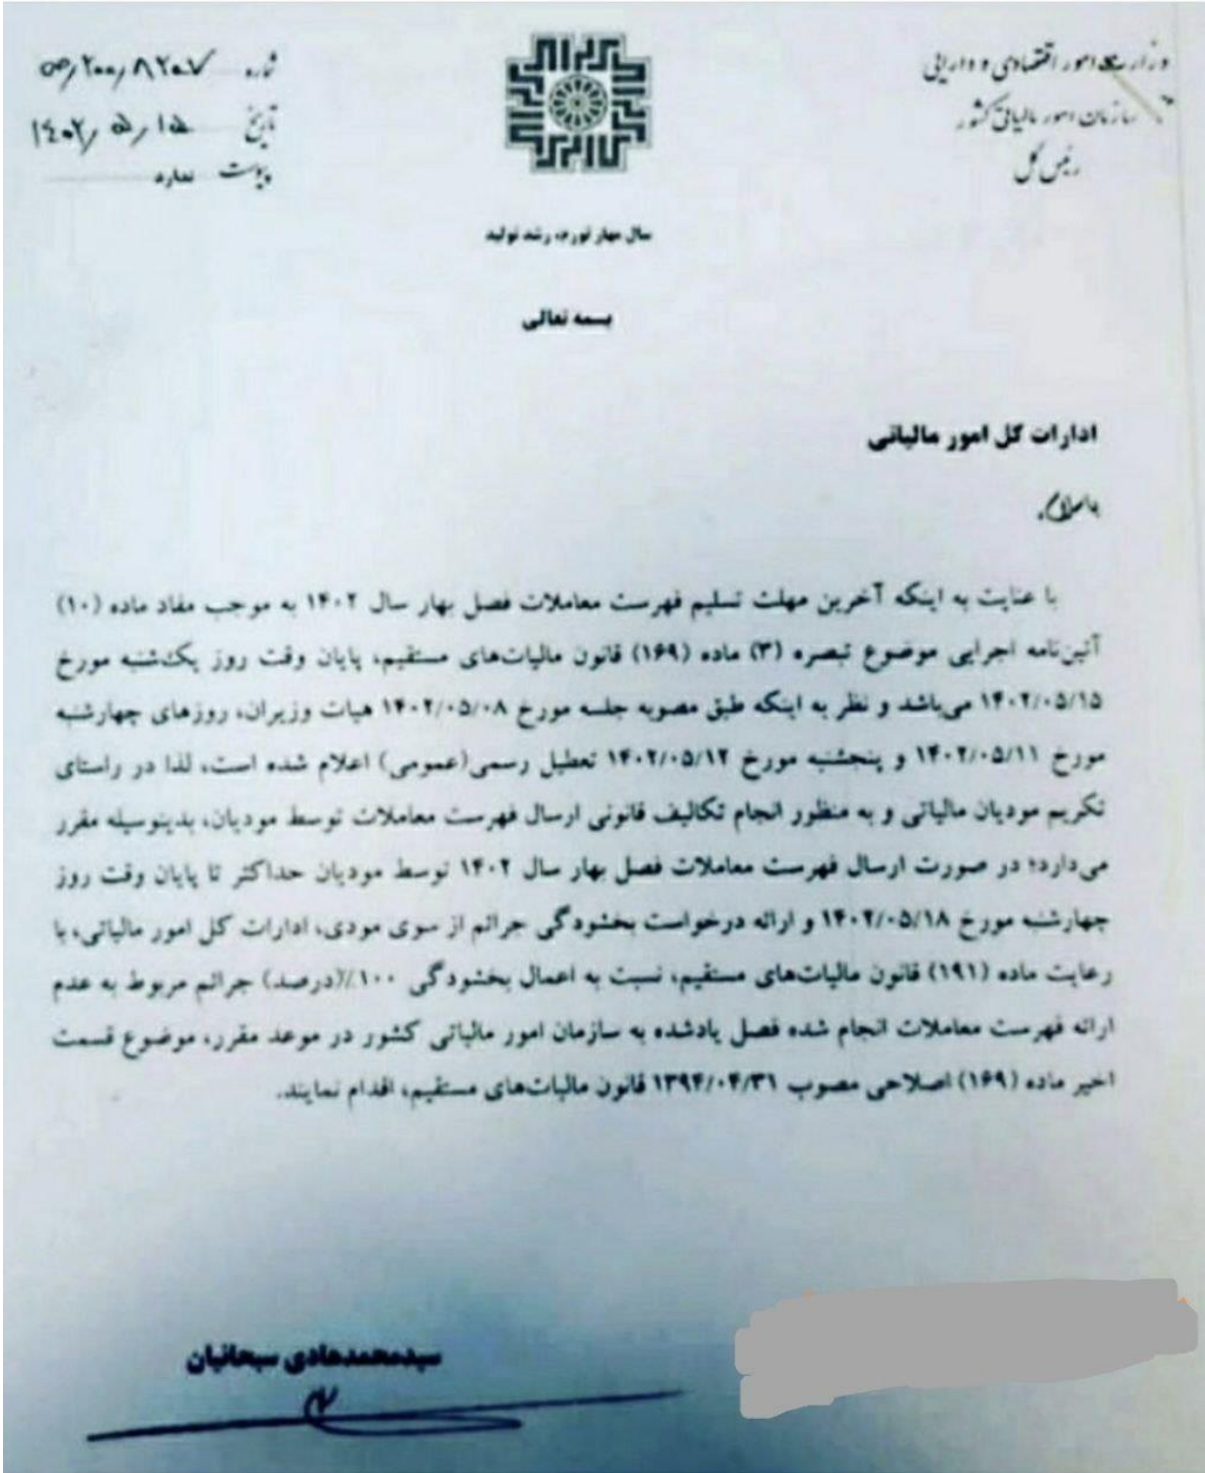 وزارت امور اقتصادی و دارایی
سازمان امور مالیاتی کشور
رئیس کل
شماره
تاریخ ۱۴۰۲/۵/۱۵
پیوست ندارد
سال مهار تورم، رشد تولید
بسمه تعالی
ادارات کل امور مالیاتی
باسلام،
با عنایت به اینکه آخرین مهلت تسلیم فهرست معاملات فصل بهار سال ۱۴۰۲ به موجب مفاد ماده (۱۰)
آئین‌نامه اجرایی موضوع تبصره (۳) ماده (۱۶۹) قانون مالیات‌های مستقیم، پایان وقت روز یک‌شنبه مورخ
۱۴۰۲/۰۵/۱۵ می‌باشد و نظر به اینکه طبق مصوبه جلسه مورخ ۱۴۰۲/۰۵/۰۸ هیات وزیران، روزهای چهارشنبه
مورخ ۱۴۰۲/۰۵/۱۱ و پنجشنبه مورخ ۱۴۰۲/۰۵/۱۲ تعطیل رسمی(عمومی) اعلام شده است، لذا در راستای
تکریم مودیان مالیاتی و به منظور انجام تکالیف قانونی ارسال فهرست معاملات توسط مودیان، بدینوسیله مقرر
می‌دارد؛ در صورت ارسال فهرست معاملات فصل بهار سال ۱۴۰۲ توسط مودیان حداکثر تا پایان وقت روز
چهارشنبه مورخ ۱۴۰۲/۰۵/۱۸ و ارائه درخواست بخشودگی جرائم از سوی مودی، ادارات کل امور مالیاتی، با
رعایت ماده (۱۹۱) قانون مالیات‌های مستقیم، نسبت به اعمال بخشودگی ۱۰۰٪(درصد) جرائم مربوط به عدم
ارائه فهرست معاملات انجام شده فصل یادشده به سازمان امور مالیاتی کشور در موعد مقرر، موضوع قسمت
اخیر ماده (۱۶۹) اصلاحی مصوب ۱۳۹۴/۰۴/۳۱ قانون مالیات‌های مستقیم، اقدام نمایند.
سیدمحمدهادی سبحانیان